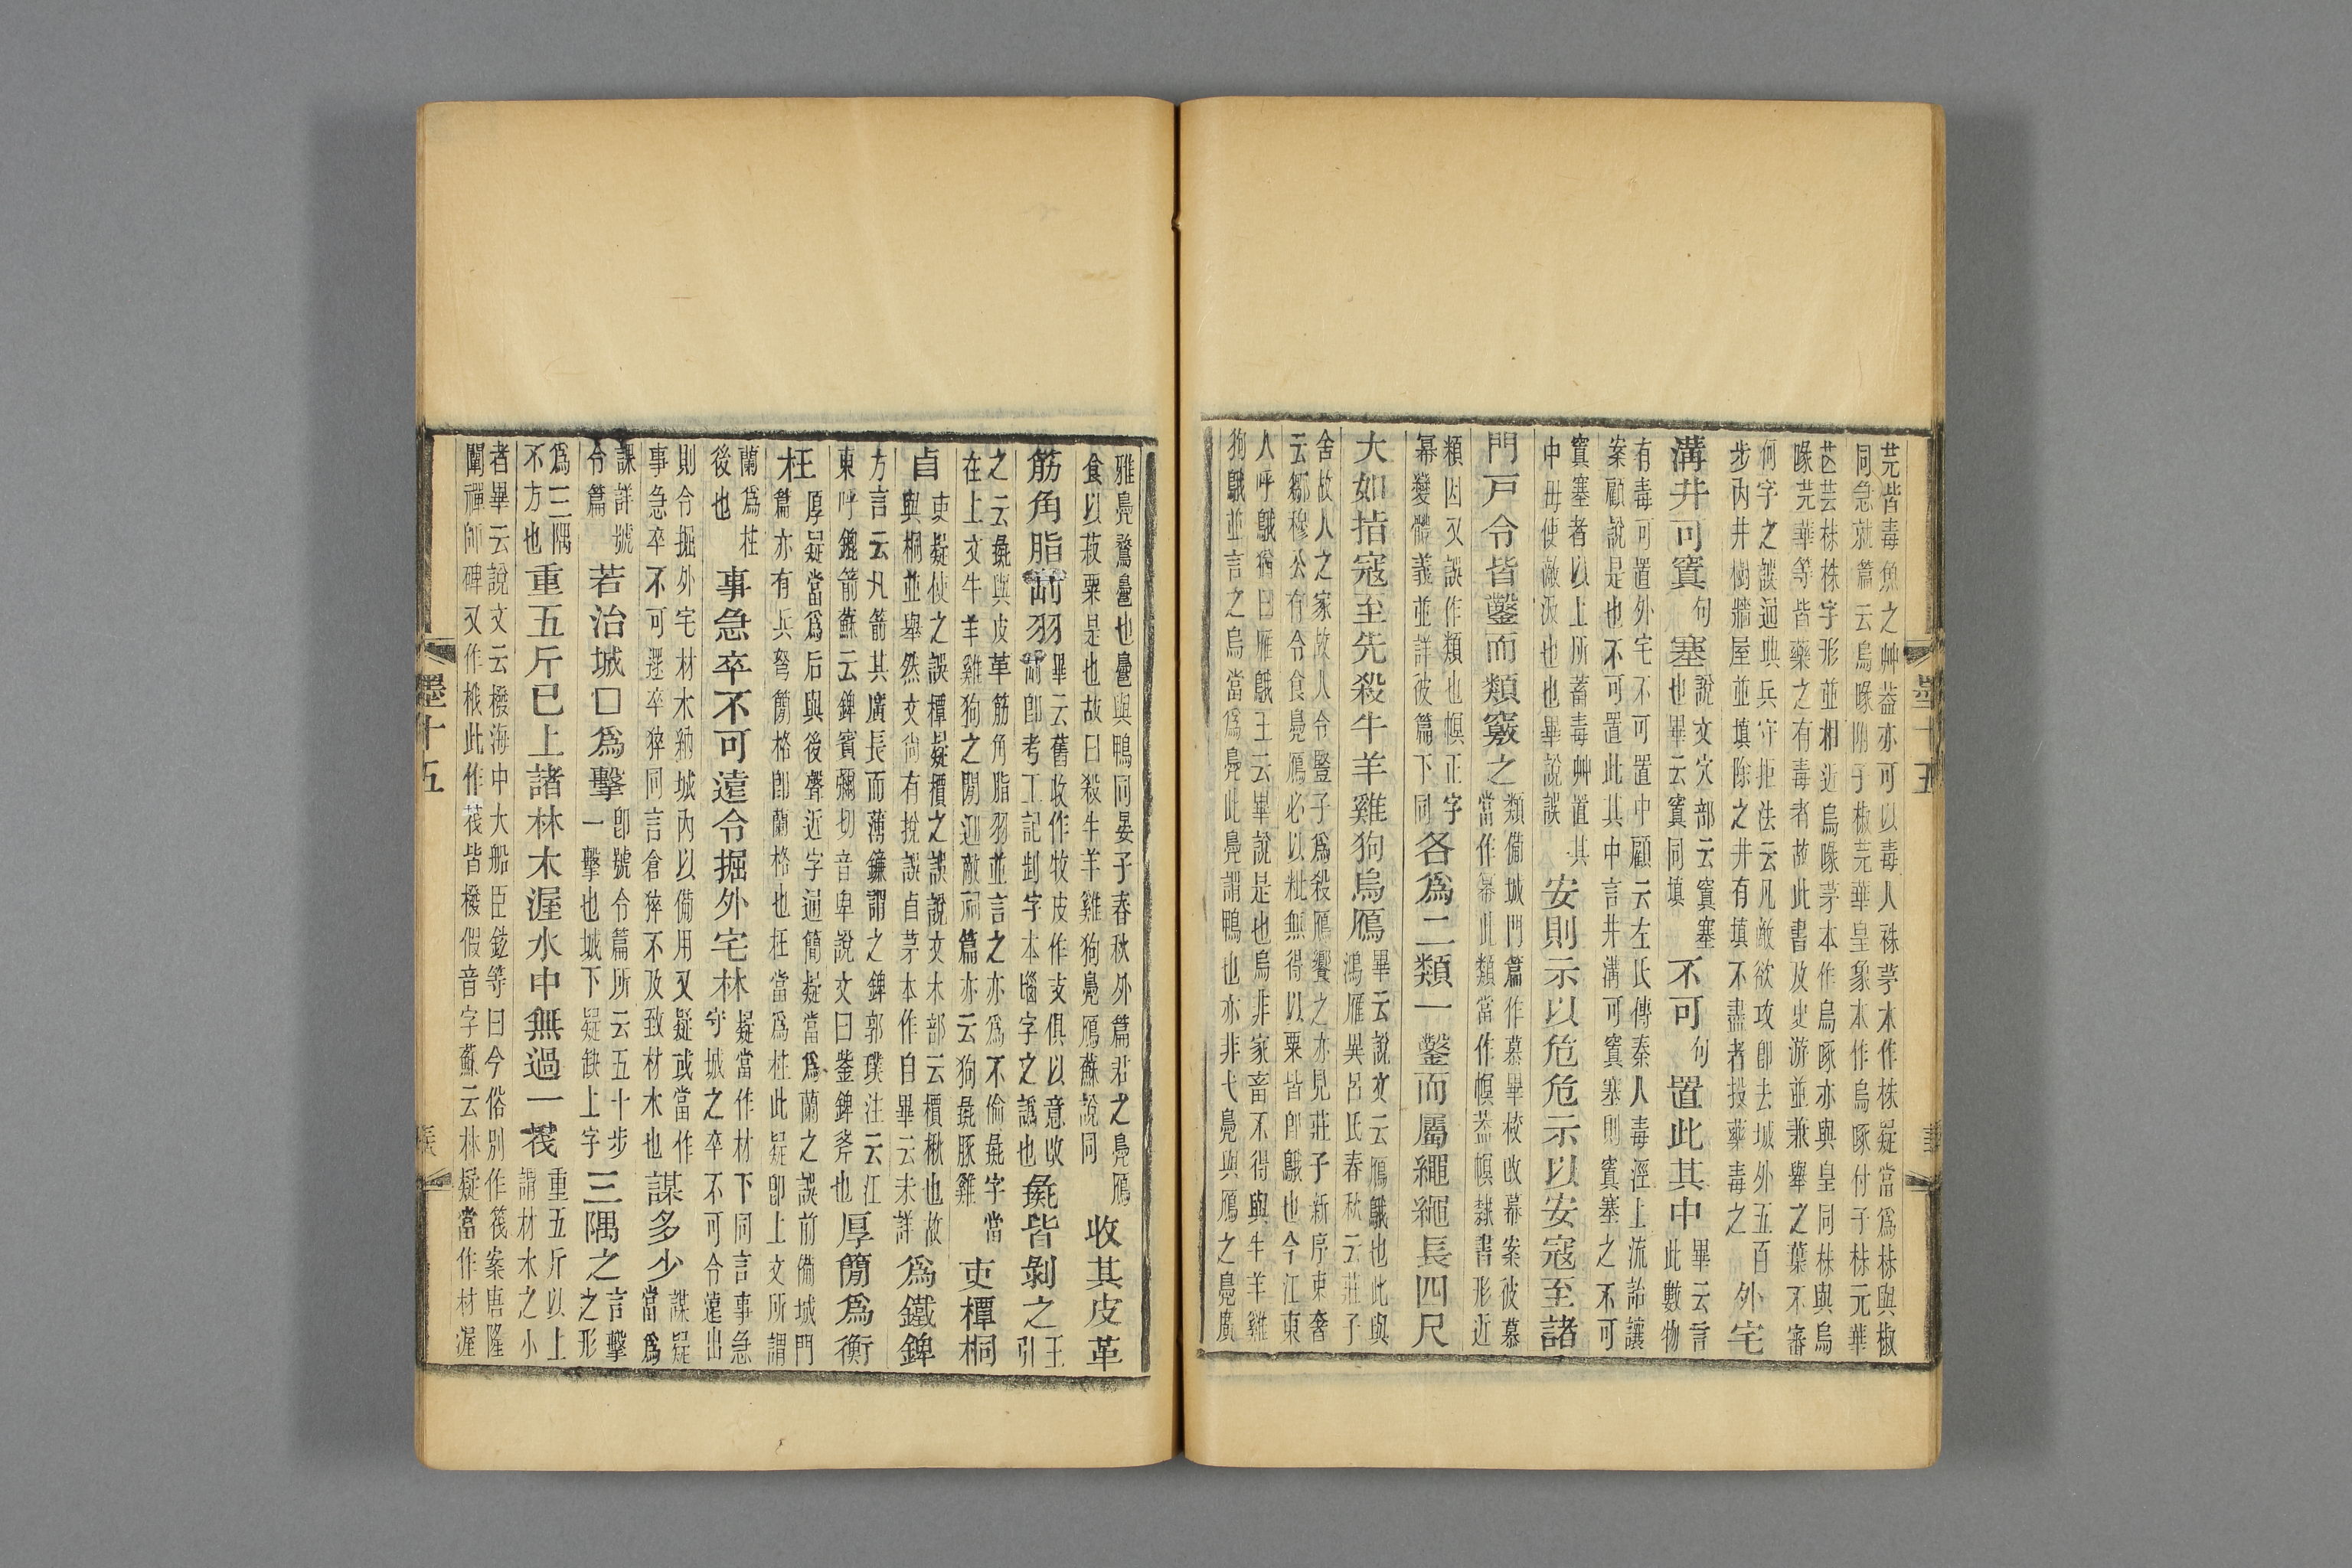 芫皆毒魚之艸葢亦可以毒人祩茅本作株疑當爲株與椒
同急就篇云烏喙附子椒芫華皇象本作烏啄付子株元華
芑芸株株字形並相近烏喙茅本作烏啄亦與皇同株與烏
喙芫華等皆藥之有毒者故此書及史游並兼舉之葉不審
何字之譌通典兵守拒法云凡敵欲攻卽去城外五百
步內井樹牆屋並填除之井有填不盡者投藥毒之外宅
溝井可窴句塞說文穴部云窴塞也畢云窴同填不可句置此其中畢云言此數物
有毒可置外宅不可置中顧云左氏傳秦人毒涇上流詒讓
案顧說是也不可置此其中言井溝可窴塞則窴塞之不可
窴塞者以上所蓄毒艸置其中毋使敵汲也也畢說誤安則示以危危示以安寇至諸
門戸令皆鑿而類竅之類備城門篇作慕畢校改幕案彼慕當作幂此類當作幎葢幎隸書形近
類因又誤作類也幎正字幂變體義並詳彼篇下同各爲二類一鑿而屬繩繩長四尺
大如指寇至先殺牛羊雞狗烏鴈畢云說文云鴈䳘也此與鴻雁異呂氏春秋云莊子
舍故人之家故人令豎子爲殺鴈饗之亦見莊子新序刺奢
云鄒穆公有令食鳧鴈必以粃無得以粟皆卽䳘也今江東
人呼䳘猶曰雁䳘王云畢說是也烏非家畜不得與牛羊雞
狗䳘並言之烏當爲鳧此鳧謂鴨也亦非弋鳧與鴈之鳧廣
雅鳧鶩也與鴨同晏子春秋外篇君之鳧鴈食以菽粟是也故曰殺牛羊雞狗鳧鴈蘇說同收其皮革
筋角脂羽畢云舊收作牧皮作支俱以意改卽考工記字本字之譌也彘皆剝之王引
之云彘與皮革筋角脂羽並言之亦爲不倫彘字當在上文牛羊雞狗之閒迎敵祠篇亦云狗彘豚雞吏橝桐
吏疑使之誤橝疑檟之誤說文木部云檟楸也故與桐並舉然文尚有挩誤茅本作自畢云未詳爲鐵錍
方言云凡箭其廣長而薄鐮謂之錍郭璞注云江東呼鎞箭蘇云錍賓彌切音卑說文曰鈭錍斧也厚簡爲衡
枉厚疑當爲后與後聲近字通簡疑當爲蘭之誤前備城門篇亦有兵弩簡格卽蘭格也枉當爲柱此疑卽上文所謂
蘭爲柱後也事急卒不可遠令掘外宅林疑當作材下同言事急守城之卒不可令遠出
則令掘外宅材木納城內以備用又疑或當作事急卒不可遷卒猝同言倉猝不及致材木也謀多少謀疑當爲
課詳號令篇若治城□爲擊卽號令篇所云五十步一擊也城下疑缺上字三隅之言擊之形
爲三隅不方也重五斤已上諸林木渥水中無過一茷重五斤以上謂材木之小
者畢云說文云橃海中大船臣鉉等曰今俗別作筏案唐隆
闡禪師碑又作栰此作茷皆橃假音字蘇云林疑當作材渥
墨十五